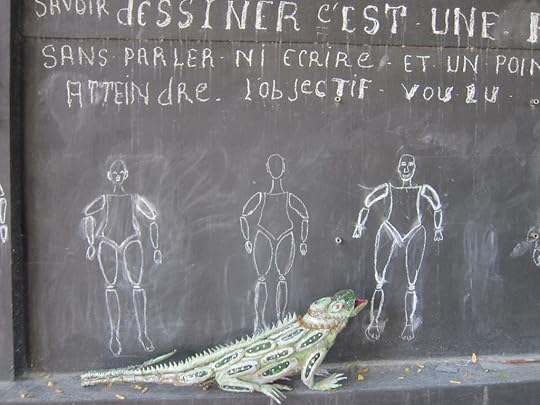 SAVOIR dESSINER C'EST. UNE.
SANS. PARLER. NI ECRIRE. ET UN POIN
ATTEINdRE. L'OBJECTIF. VOULU.